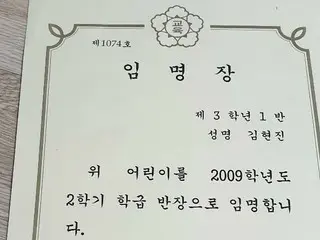 교육
제1074호
임 명 장
제 3 학년 1 반
성명 김현진
위 어린이를 2009학년도
2학기 학급 반장으로 임명합니
다.